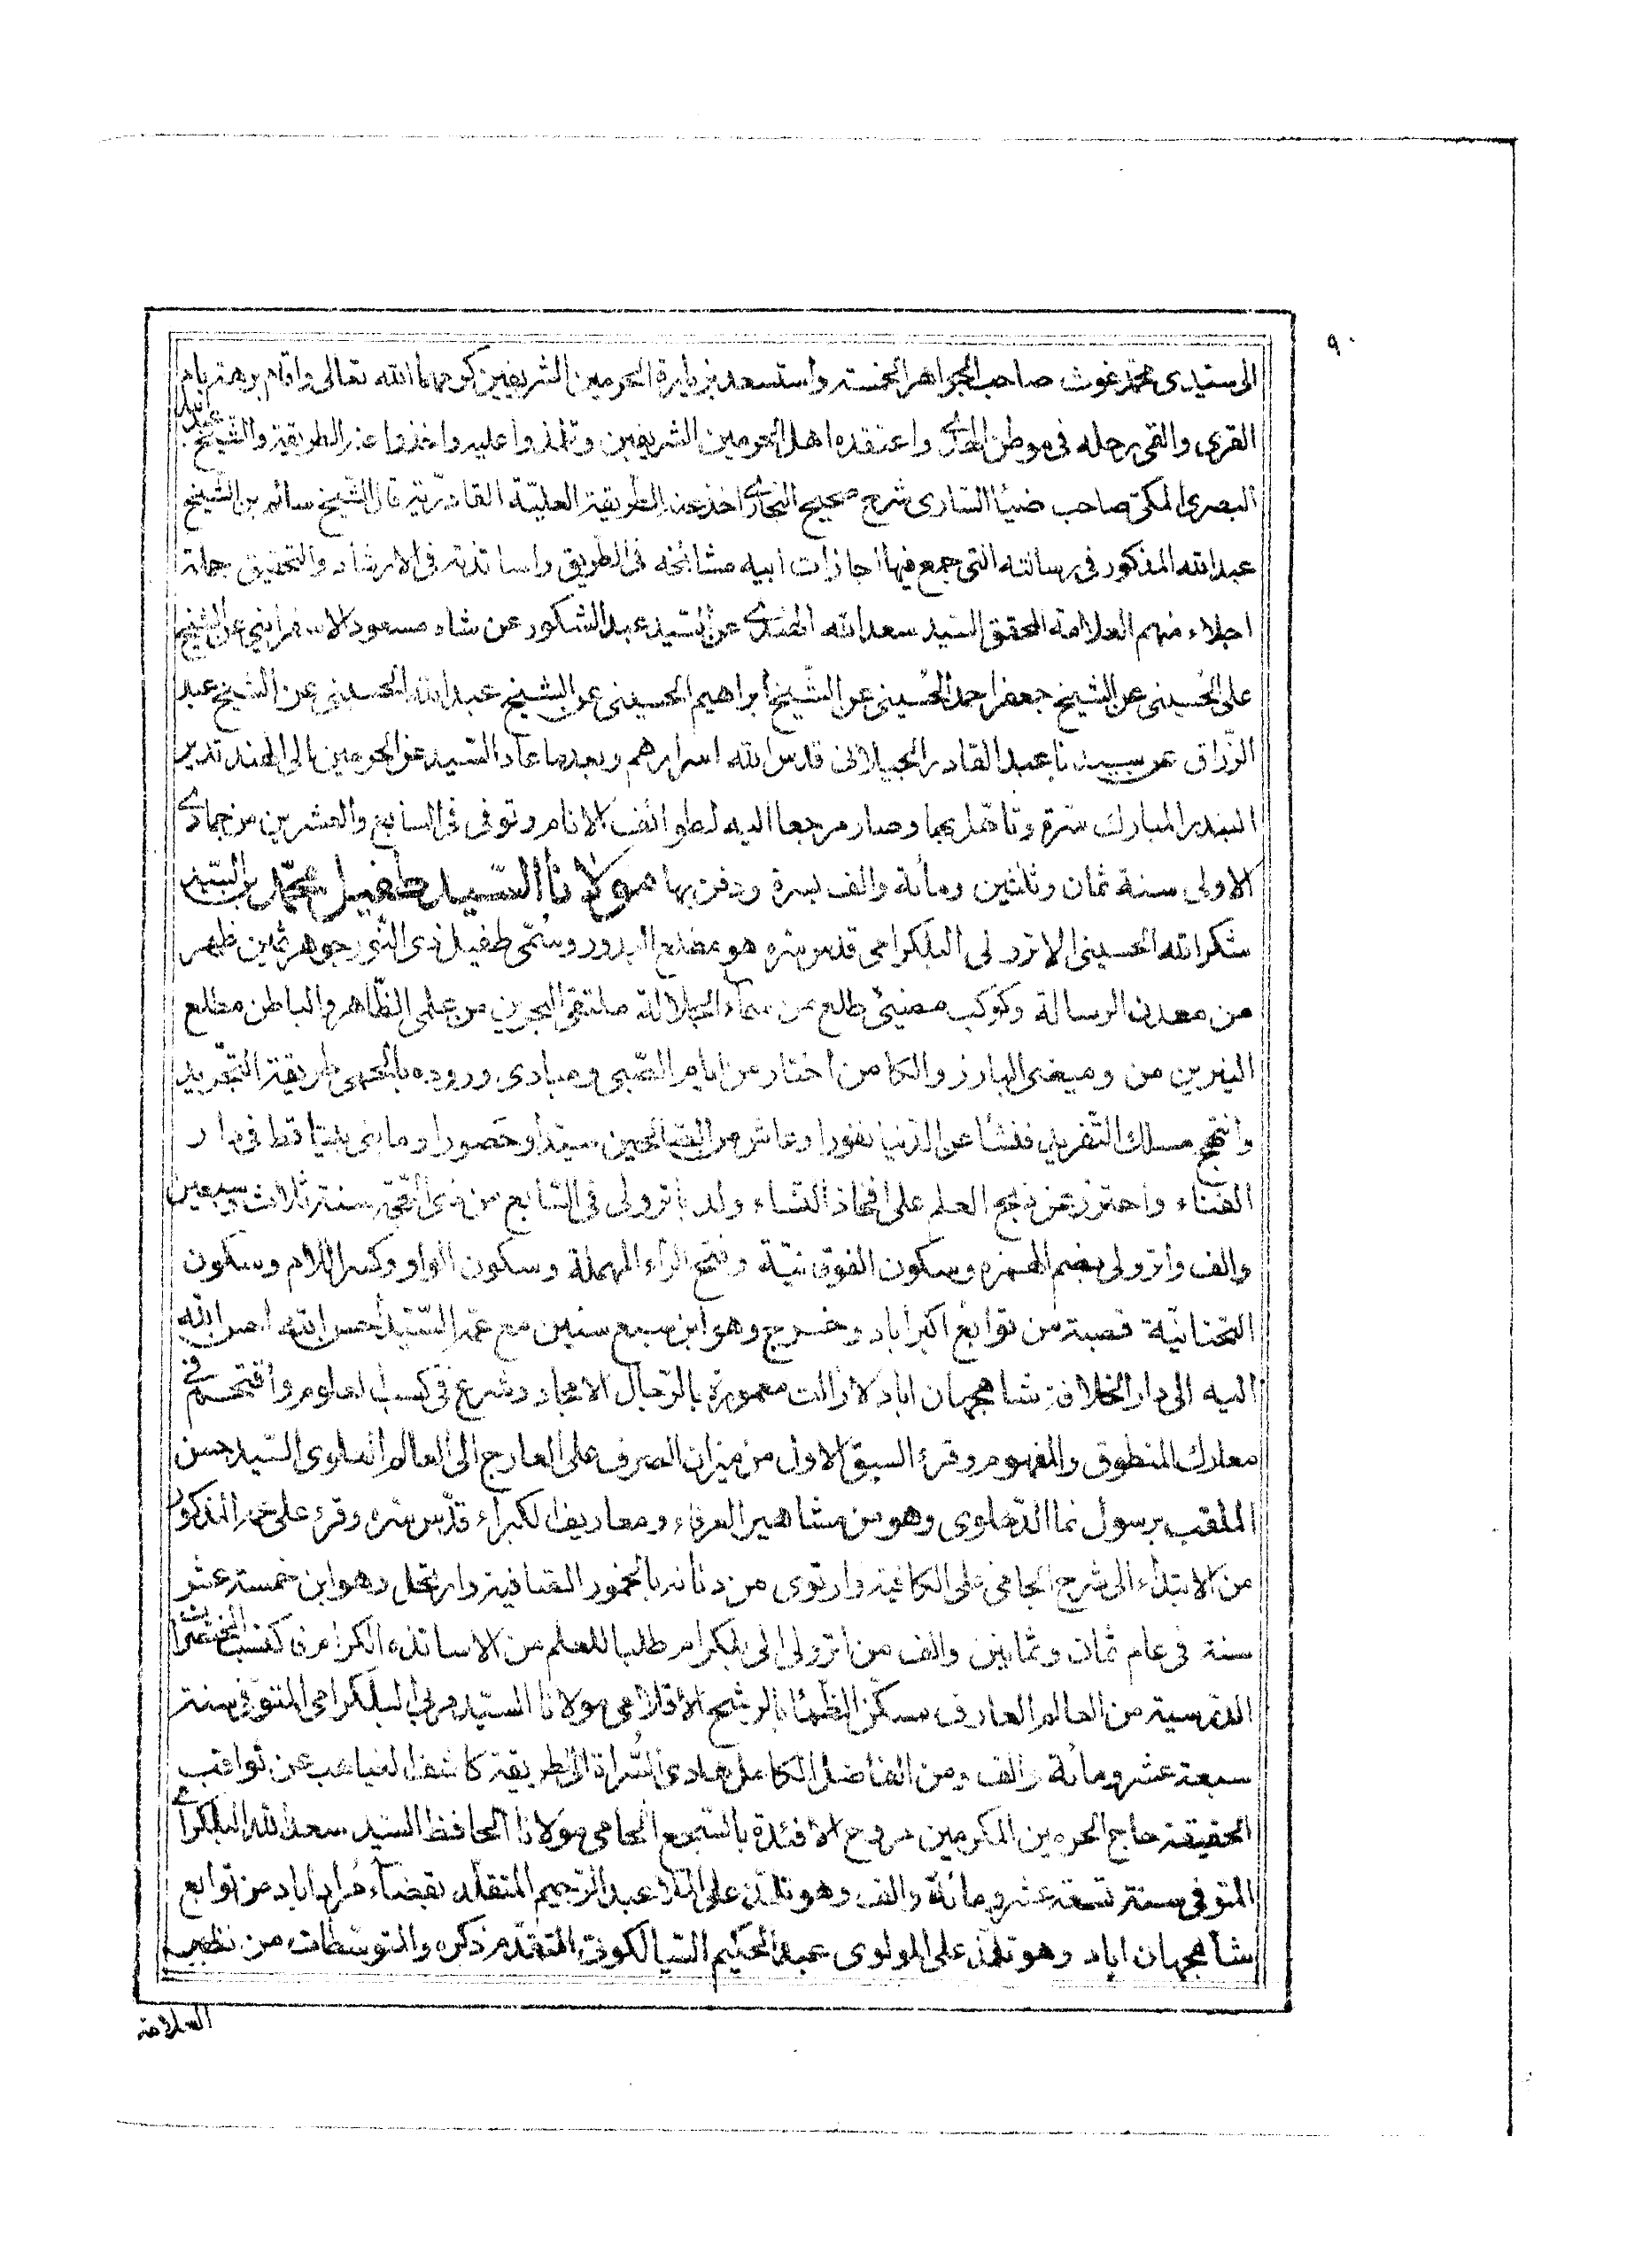 ٩٠
الى سيدى محمد غوث صاحب الجواهر الخمسة واستسعد بزيارة الحرمين الشريفين كرمهما الله تعالى واقام برهة بام
القرى والقى رحله فى موطن الهدى واعتقده اهل الحرمين الشريفين وتلمذوا عليه واخذوا عنه الطريقة والشيخ عبد الله
البصرى المكى صاحب ضياء السارى شرح صحيح البخارى اخذ عنه الطريقة العليّة القادرية قال الشيخ سالم بن الشيخ
عبد الله المذكور فى رسالته التى جمع فيها اجازات ابيه مشائخه فى الطريق واساتذته فى الارشاد والتحقيق جملة
اجلاء منهم العلامة المحقق السيد سعد الله الهندى عن السيد عبد الشكور عن شاه مسعود الاسفرائنى عن الشيخ
على الحُسينى عن الشيخ جعفر احمد الحُسينى عن الشيخ ابراهيم الحسينى عن الشيخ عبد الله الحسينى عن الشيخ عبد
الرّزاق عن سيدنا عبد القادر الجيلانى قدس الله اسرارهم وبعدما عاد السيد عن الحرمين الى الهند تدير
البندر المبارك سرة وتاهّل بها وصار مرجعا اليه لطوائف الانام وتوفى فى السابع والعشرين من جمادى
الاولى سنة ثمان وثلثين ومائة والف بسرة ودفن بها مولانا السّيد طفيل محمّد بن السّيد
شكر الله الحسينى الاترولى البلكرامى قدس سره هو مطلع البدور وسُمّى طفيل ذى النّور جوهر ثمين ظهر
من معدن الرسالة وكوكب مضيئ طلع من سماء الجلالة ملتقى البحرين من علمى الظّاهر والباطن مطلع
النيرين من وميضى البارز والكامن اختار من ايام الصّبى ومبادى وروده بالحمى طريقة التجريد
وانتهج مسلك التّفريد فنشأ عن الدنيا نفورا وعاش من الصالحين سيّدا وحَصورا وما بنى بيتا قط فى دار
الفناء واحترز عن ذبح العلم على افخاذ النساء ولد باترولى فى السّابع من ذى الحجّة سنة ثلاث وسبعين
والف واترولى بضم الهمزة وسكون الفوقانيّة وفتح الراء المهملة وسكون الواو وكسر اللام وسكون
التحتانيّة قصبة من توابع اكبراباد وخرج وهو ابن سبع سنين مع عمه السّيّد احسن الله احسن الله
اليه الى دار الخلافة شاهجهان اباد لا زالت معمورة بالرّجال الامجاد وشرع فى كسب العلوم واقتحم فى
معارك المنطوق والمفهوم وقرء السبق الاول من ميزان الصرف على العارج الى العالم العلوى السّيد حسن
الملقب برسول نما الدّهلوى وهو من مشاهير العرفاء ومعاريف الكبراء قدّس سّره وقرء على عمه المذكور
من الابتداء الى شرح الجامى على الكافية وارتوى من دنانه بالخمور الصافية وارتحل وهو ابن خمسة عشر
سنة فى عام ثمان وثمانين والف من اترولى الى بلكرام طلبا للعلم من الاساتذه الكرام
الدّرسية من العالم العارف مسكّن الظّماء بالرشح الاقلامى مولانا السيّد مربى البلكرامى المتوفى سنة
سبعة عشر ومائة والف ومن الفاضل الكامل هادى السُراة الى الطريقة كاشف الغياهب عن ثواقب
الحقيقة حاج الحرمين المكرمين مروح الافئدة بالسّجع الحامى مولانا الحافظ السّيد سعد الله البلكرامى
المتوفى سنة تسعة عشر ومائة والف وهو تلمّذ على الملا عبد الرّحيم المتقلّد بقضاء مُراداباد من توابع
شاهجهان اباد وهو تلمّذ على المولوى عبد الحكيم السّيالكوتى المتقدّم ذكره والمتوسّطات من نظير
العلامة